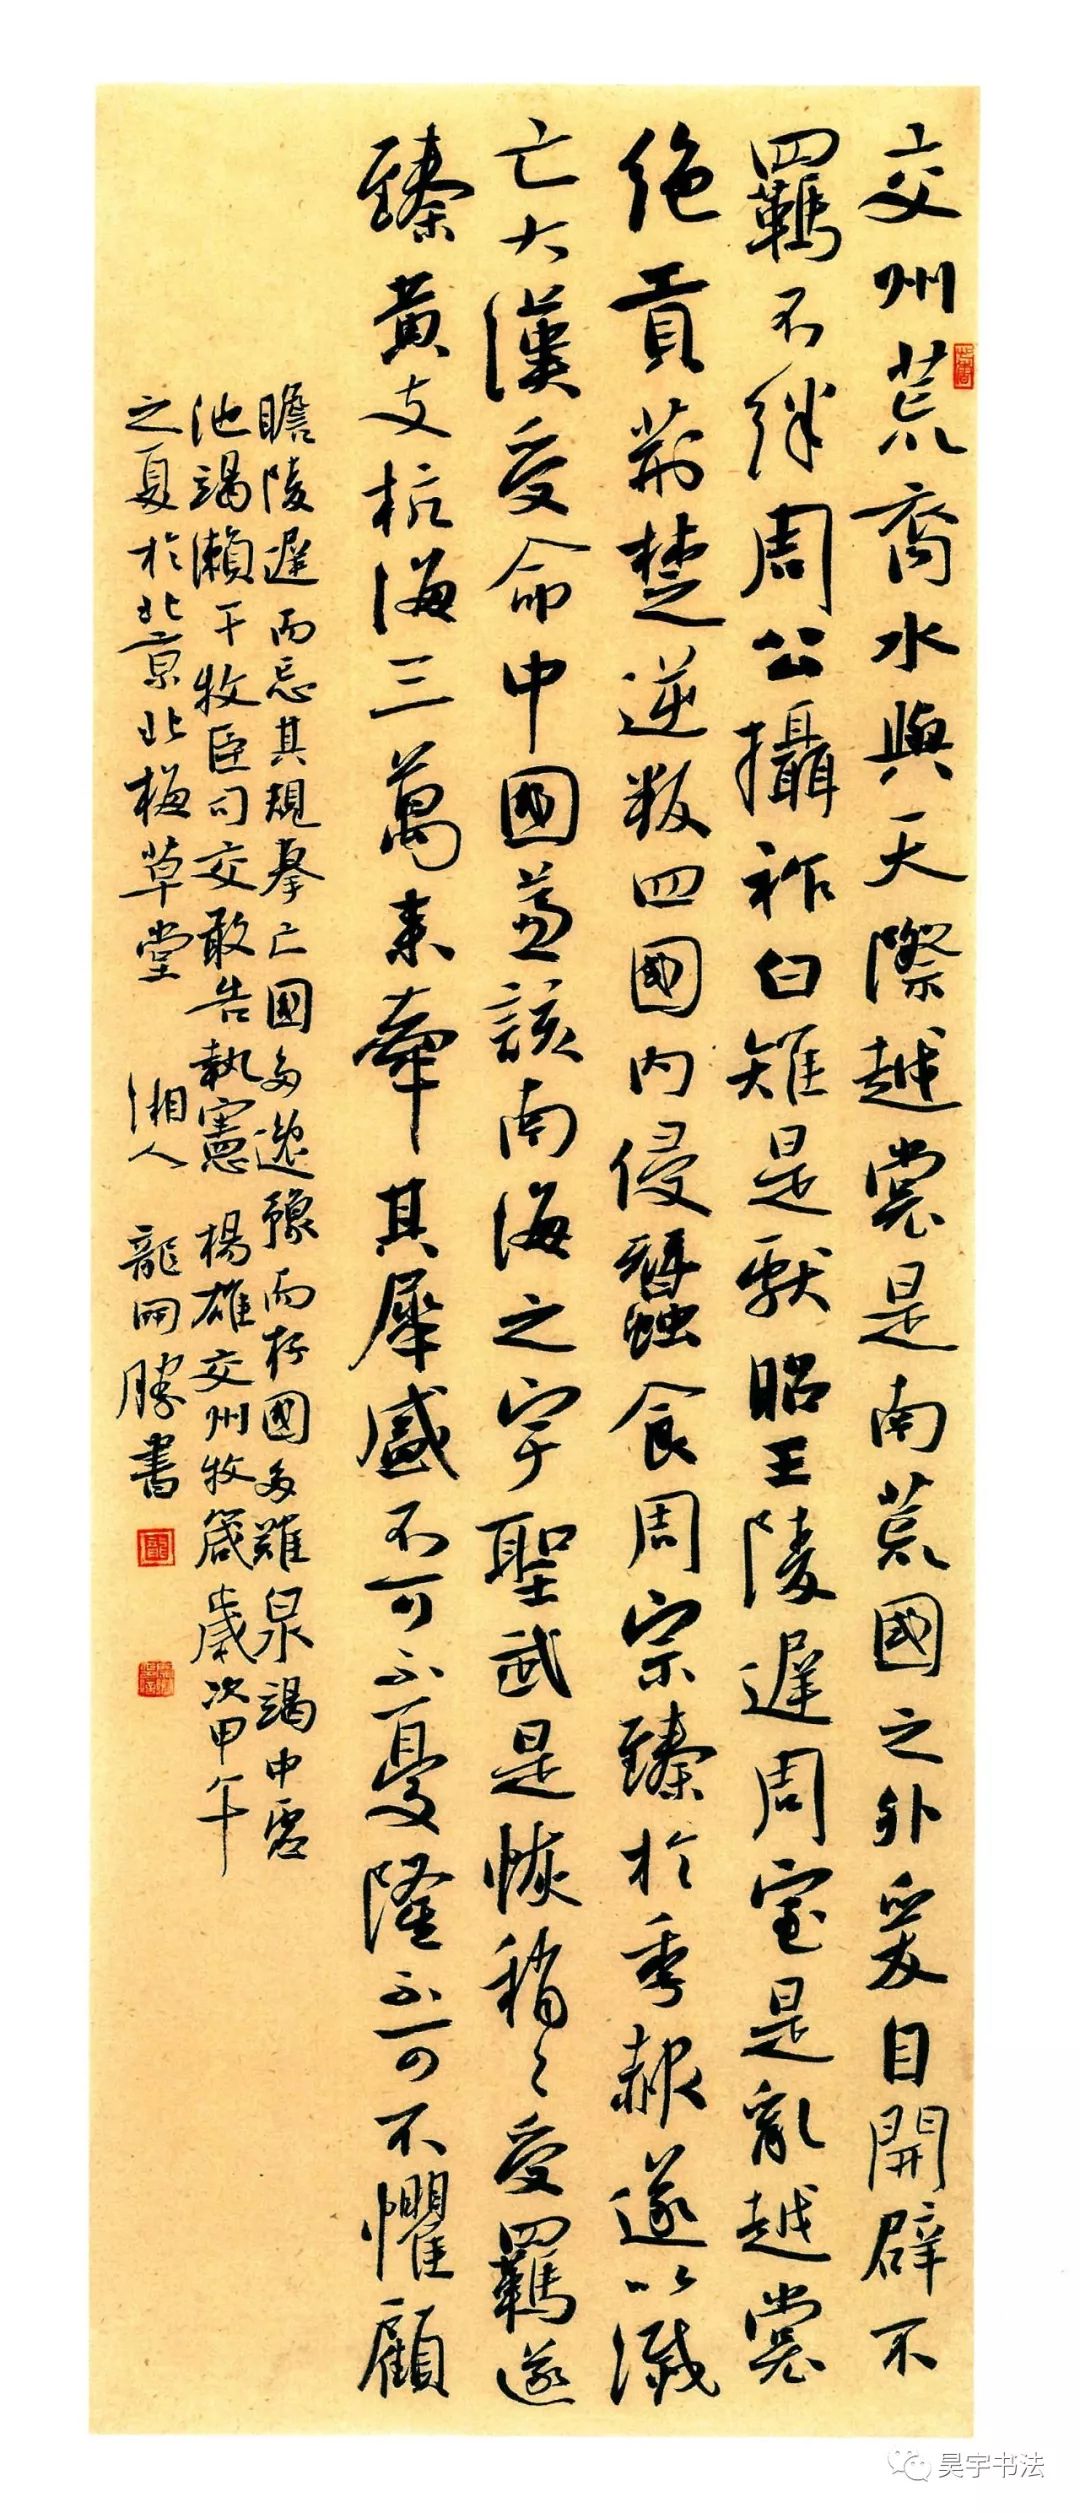 交州荒裔水與天際越裳是南荒國之外爰自開辟不
羈不絆周公攝祚白雉是獻昭王陵遲周室是亂越裳
絕貢荊楚逆叛四國內侵蠶食周宗臻於季赧遂以滅
亡大漢受命中國兼該南海之宇聖武是恢稍〻受羈遂
臻黃支杭海三萬來牽其犀盛不可不憂隆不可不懼顧
瞻陵遲而忘其規摹亡國多逸豫而存國多難泉竭中虛
池竭瀨干牧臣司交敢告執憲 楊雄交州牧箴歲次甲午
之夏於北京北梅草堂 湘人 龍開勝書
昊宇书法